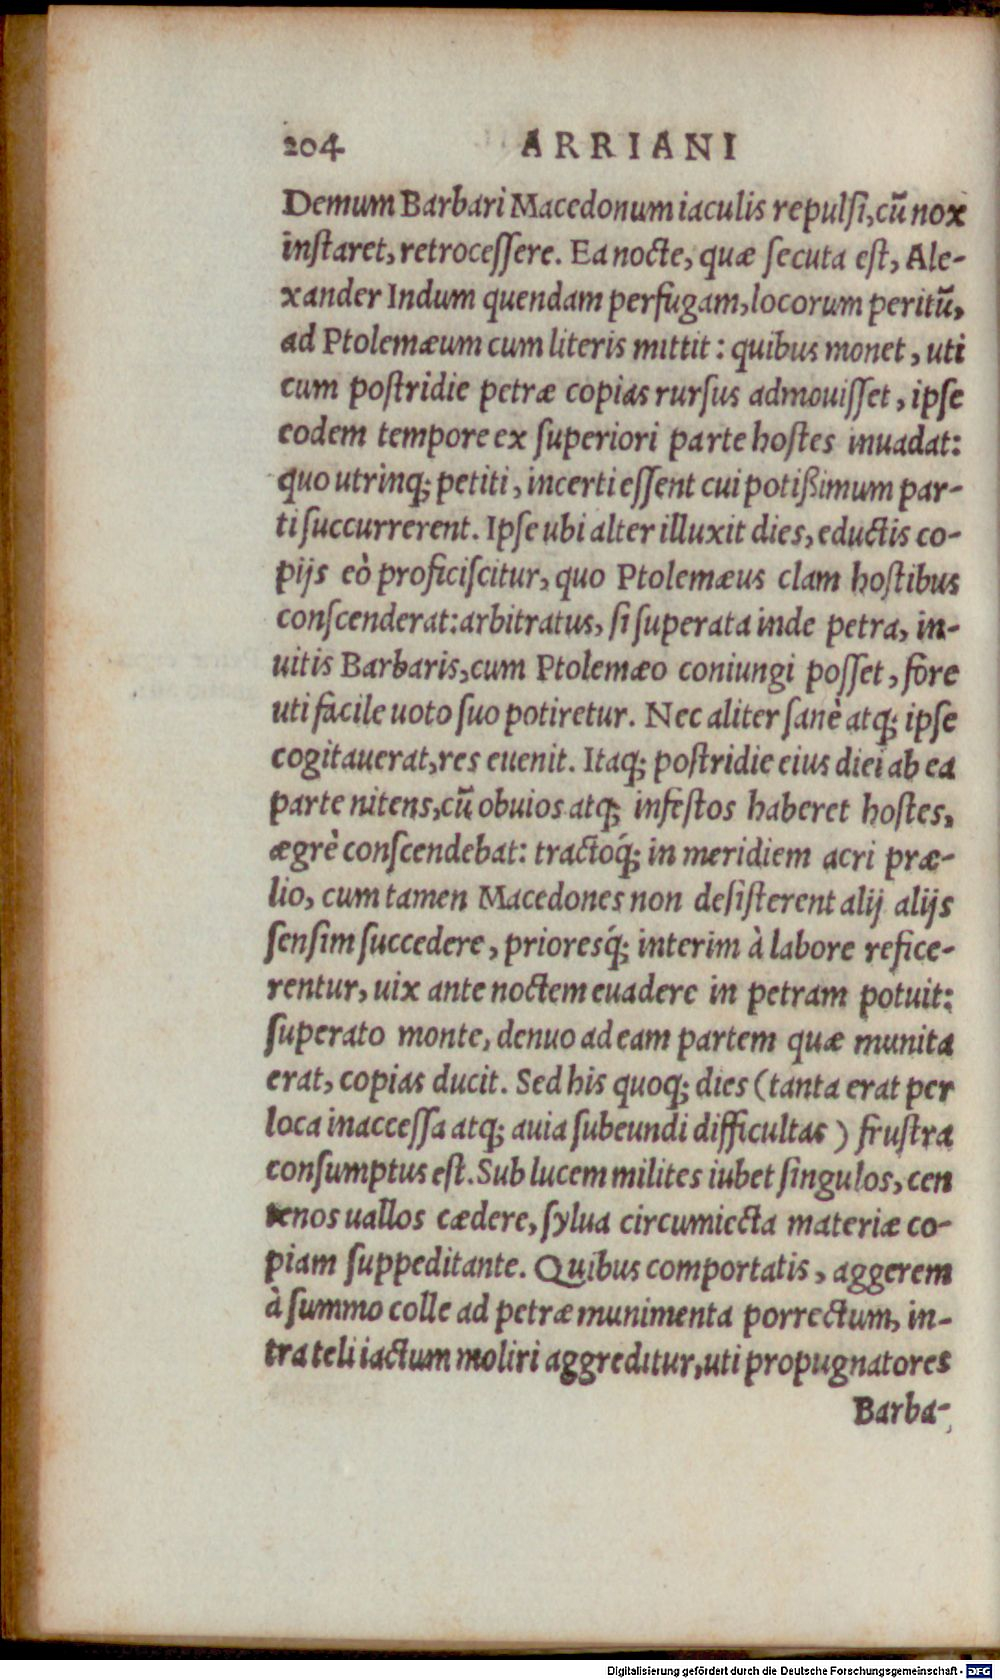 204 ARRIANI
Demum Barbari Macedonum iaculis repulsi, cū nox
instaret, retrocessere. Ea nocte, quæ secuta est, Ale-
xander Indum quendam perfugam, locorum peritū,
ad Ptolemæum cum literis mittit: quibus monet, uti
cum postridie petræ copias rursus admouisset, ipse
eodem tempore ex superiori parte hostes inuadat:
quo utrinq; petiti, incerti essent cui potißimum par-
ti succurrerent. Ipse ubi alter illuxit dies, eductis co-
pijs eò proficiscitur, quo Ptolemæus clam hostibus
conscenderat: arbitratus, si superata inde petra, in-
uitis Barbaris, cum Ptolemæo coniungi posset, fore
uti facile uoto suo potiretur. Nec aliter sanè atq; ipse
cogitauerat, res euenit. Itaq; postridie eius diei ab ea
parte nitens, cū obuios atq; infestos haberet hostes,
ægrè conscendebat: tractoq́; in meridiem acri præ-
lio, cum tamen Macedones non desisterent alij alijs
sensim succedere, prioresq́; interim à labore refice-
rentur, uix ante noctem euadere in petram potuit:
superato monte, denuo ad eam partem quæ munita
erat, copias ducit. Sed his quoq; dies (tanta erat per
loca inaccessa atq; auia subeundi difficultas) frustra
consumptus est. Sub lucem milites iubet singulos, cen
tenos uallos cædere, sylua circumiecta materiæ co-
piam suppeditante. Quibus comportatis, aggerem
à summo colle ad petræ munimenta porrectum, in-
tra teli iactum moliri aggreditur, uti propugnatores
Barba-
Digitalisierung gefördert durch die Deutsche Forschungsgemeinschaft - DFG